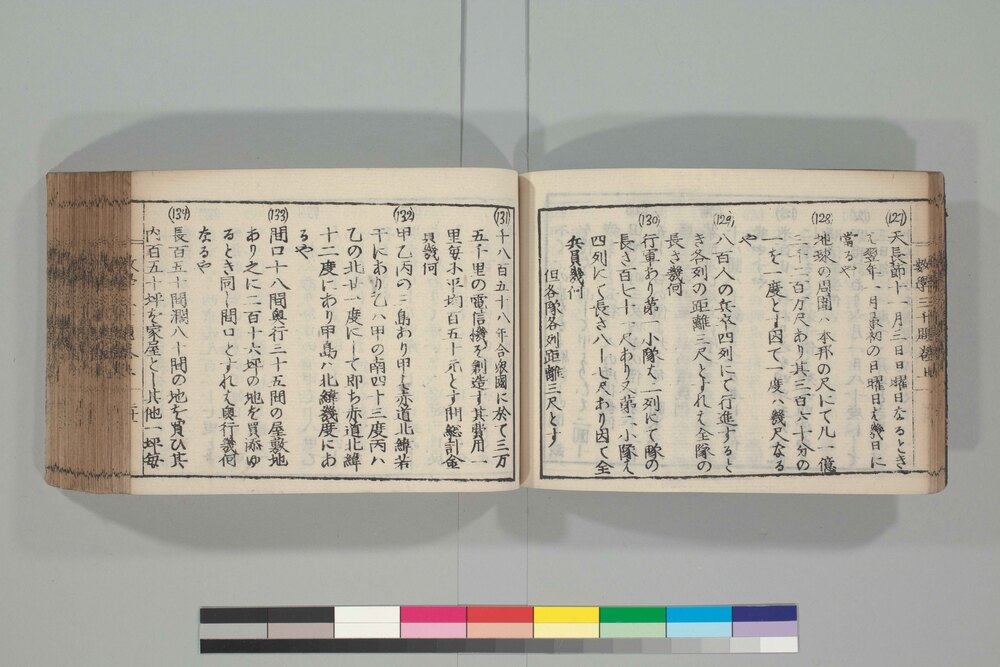 (127)
天長節十一月三日日曜日なるとき
翌年一月最初の日曜日ハ幾日に
當るや
(128)
地球の周圍ハ本邦の尺にて凡一億
三千二百万尺あり其三百六十分の
一を一度とす因て一度ハ幾尺なる
や
(129)
八百人の兵卒四列にて行進すると
き各列の距離三尺とすれハ全隊の
長さ幾何
(130)
行軍あり第一小隊ハ二列にて隊の
長さ百七十一尺あり又第二小隊ハ
四列にて長さ八十七尺あり因て全
兵員幾何
但各隊各列距離三尺とす
(131)
千八百五十八年合衆國に於て三万
五千里の電信機を創造す其費用一
里毎に平均百五十元とす問総計金
員幾何
(132)
甲乙丙の三島あり甲ハ赤道北緯若
干にあり乙ハ甲の南四十三度丙ハ
乙の北廿一度にして即ち赤道北緯
十二度にあり甲島ハ北緯幾度にあ
るや
(133)
間口十八間奥行二十五間の屋敷地
あり之に二百十六坪の地を買添ゆ
るとき同し間口とすれハ奥行幾何
なるや
(134)
長百五十間濶八十間の地を買ひ其
内百五十坪を家屋とし其他一坪毎